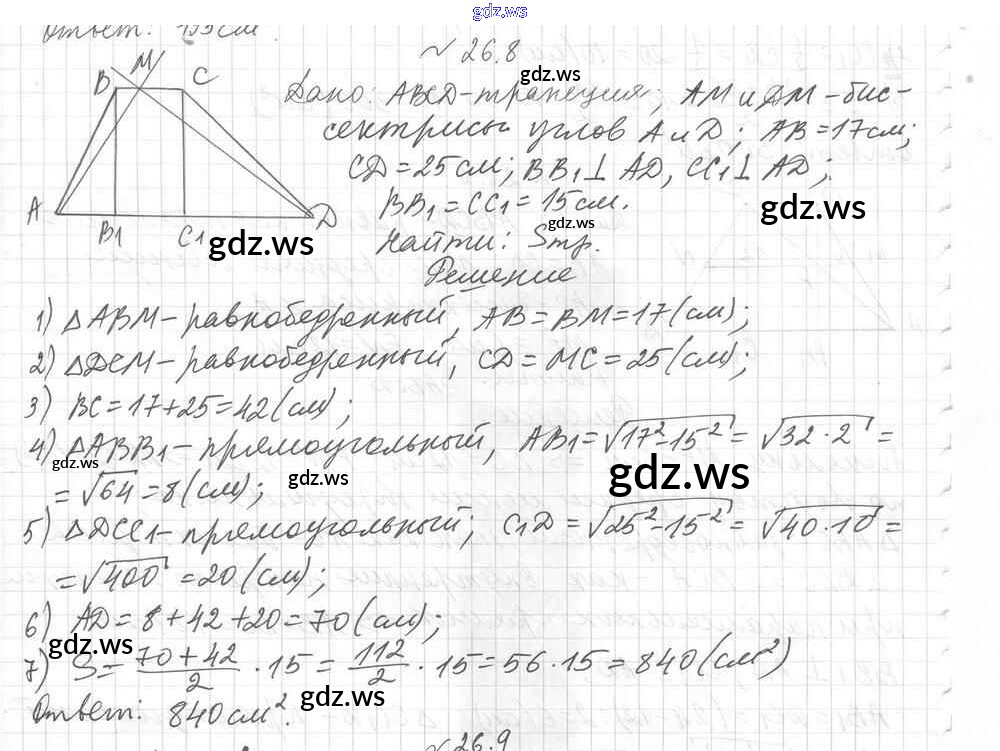 gdz.ws
Ответ: 195 см.
№ 26.8
M
B C
A B1 C1 D
Дано: ABCD-трапеция; AM и DM-бис-
сектрисы углов A и D; AB = 17 см;
CD = 25 см; BB1 ⊥ AD, CC1 ⊥ AD;
BB1 = CC1 = 15 см.
Найти: Sтр.
Решение
1) △ABM - равнобедренный, AB = BM = 17 (см);
2) △DCM - равнобедренный, CD = MC = 25 (см);
3) BC = 17 + 25 = 42 (см);
4) △ABB1 - прямоугольный, AB1 = √17² - 15² = √32 · 2 =
= √64 = 8 (см);
5) △DCC1 - прямоугольный; C1D = √25² - 15² = √40 · 10 =
= √400 = 20 (см);
6) AD = 8 + 42 + 20 = 70 (см);
7) S = 70 + 42 / 2 · 15 = 112 / 2 · 15 = 56 · 15 = 840 (см²)
Ответ: 840 см².
№ 26.9
gdz.ws
gdz.ws
gdz.ws
gdz.ws
gdz.ws
gdz.ws
gdz.ws
gdz.ws
gdz.ws